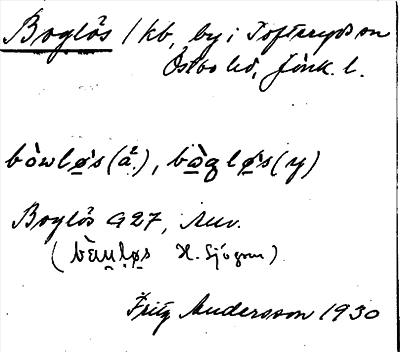 Boglös 1 kb, by i Tofteryds sn
Östbo hd, Jönk. l.
bòwlø̀s (ä.), bò̱gløs (y)
Boglös G27, Auv.
( H. Sjögren)
Fritz Andersson 1930